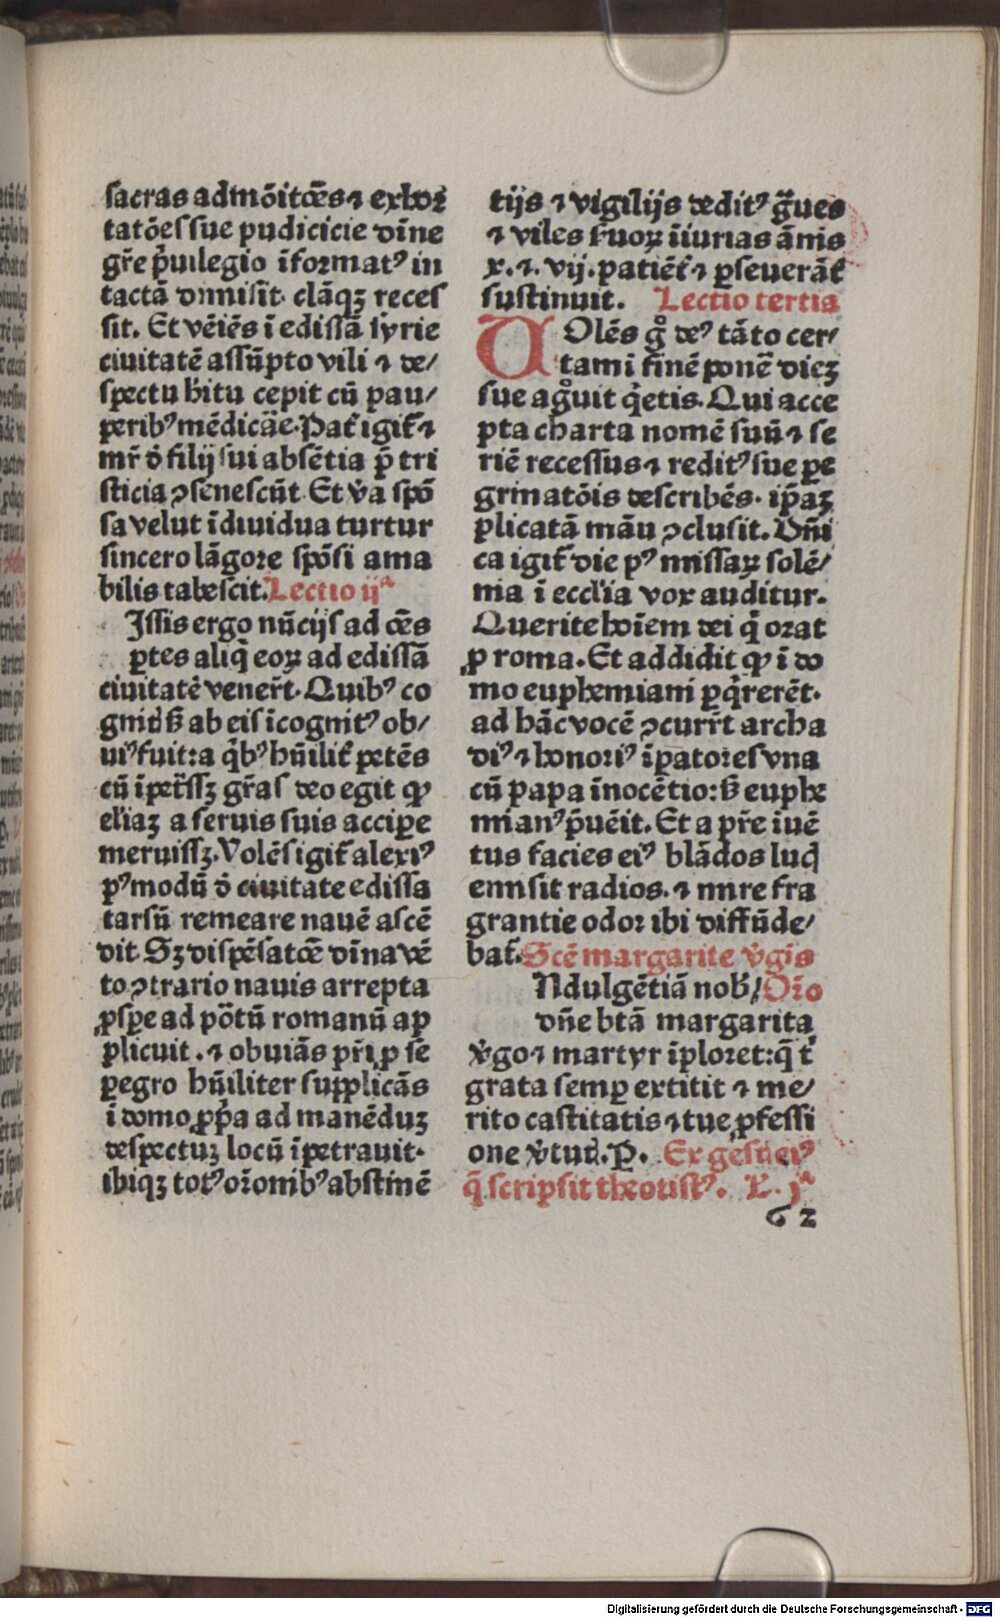 sacras admõitões ⁊ exhoꝛ
tatões sue pudicicie dīne
gr̄e p̄uilegio īformatꝰ in
tactā dimisit clāqꝫ reces
sit. Et vēiēs ī edissā syrie
ciuitatē assūpto vili ⁊ de/
spectu hītu cepit cū pau/
peribꝰ mēdicāe. Pat̄ igit̄ ⁊
mr̄ ō filij sui absētia p̄ tri
sticia ꝯsenescūt. Et v̓a spō
sa velut īdiuidua turtur
sincero lāgore spōsi ama
bilis tabescit. Lectio ijᵃ
Issis ergo nūcijs ad oēs
ꝑtes aliq̄ eoꝝ ad edissā
ciuitatē vener̄t. Quibꝰ co
ab eis īcognitꝰ ob/
uiꝰ fuit: a q̄bꝰ hūilit̄ petēs
cū īpetr̄ssꝫ gr̄as deo egit ꝙ
el̄iaꝫ a seruis suis accipe
meruissꝫ. Volēs igit̄ alexiꝰ
pꝰ modū ō ciuitate edissa
tarsū remeare nauē ascē
dit. Sꝫ dispēsatōe dīna vē
to ꝯtrario nauis arrepta
ꝓspe ad põtū romanū ap
plicuit. ⁊ obuiās pr̄i ꝓ se
ꝑegro hūiliter supplicās
ī domo ꝓp̄a ad manēduꝫ
despectuꝫ locū īpetrauit.
ibiqꝫ totꝰ or̄onibꝰ abstinē
tijs ⁊ vigilijs deditꝰ g̃ues
⁊ viles ẜuoꝝ īiurias ānis
x. ⁊. vij. patiēt̄ ⁊ ꝑseuerāt̄
sustinuit. Lectio tertia
VOlēs gͦ deꝰ tāto cer/
tami finē ponē̄ dieꝫ
sue agͦuit q̄etis. Qui acce
pta charta nomē suū ⁊ se
riē recessus ⁊ reditꝰ sue pe
grinatōis describēs. ip̄aꝫ
plicatā māu ꝯclusit. Dn̄i
ca igit̄ die pꝰ missaꝝ solē/
nia ī eccl̄ia vox auditur.
Querite hoīem dei q̄ orat
ꝓ roma. Et addidit ꝙ ī do
mo euphemiani ꝑq̄rerēt.
ad hāc vocē ꝯcurr̄t archa
diꝰ ⁊ honoriꝰ īpatores vna
cū papa īnocētio: ẞ euphe
mianꝰ p̄uēit. Et a pr̄e iuē
tus facies eiꝰ blādos luc̄
emisit radios. ⁊ mire fra
grantie odor ibi diffūde/
bat̄. Scē margarite v̓gīs
Ndulgētiā nob̄/ Or̄o
dn̄e btā margarita
v̓go ⁊ martyr īploret: q̄ t̄
grata semꝑ extitit ⁊ me/
rito castitatis ⁊ tue ꝓfessi
one v̓tut̄. P. Ex gestꝭ eiꝰ
q̄ scripsit theotistꝰ. L. jᵃ
62